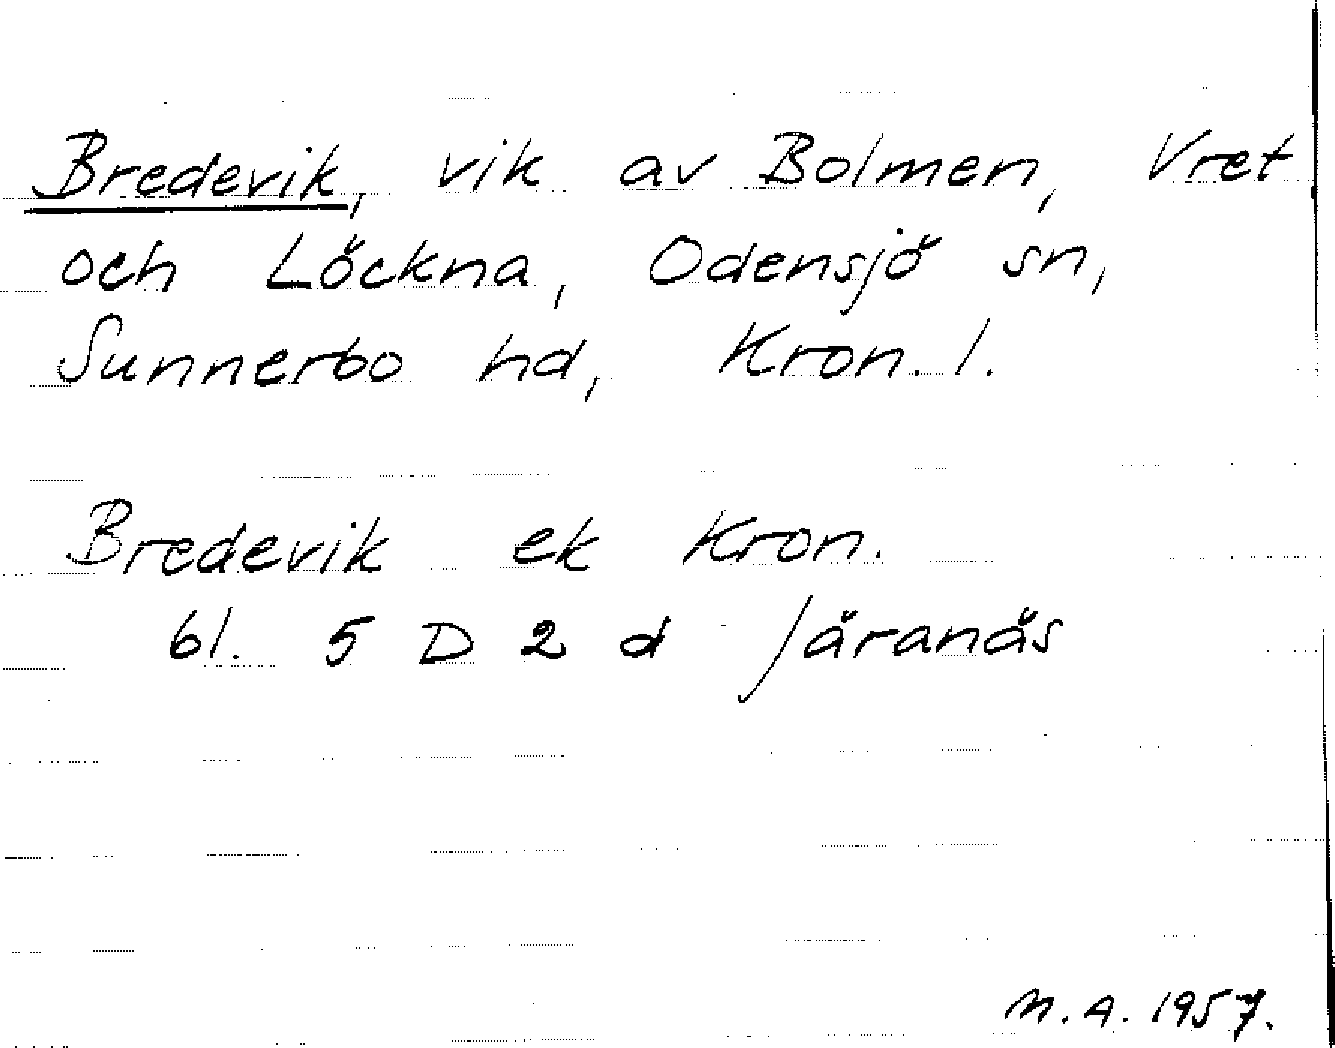 Bredevik, vik av Bolmen, Vret
och Löckna, Odensjö sn,
Sunnerbo hd, Kron. l.
Bredevik ek Kron.
bl. 5 D 2 d Järanäs
M.A. 1957.